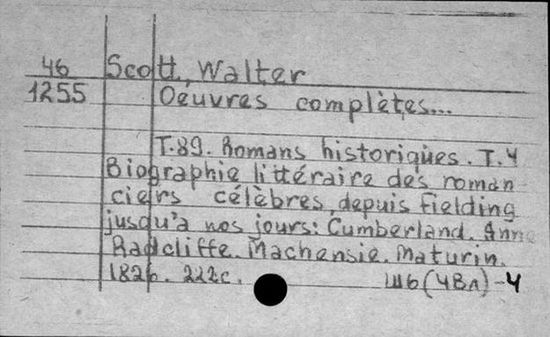 46 Scott, Walter
1255 Oeuvres complètes...
T.89. Romans historiques. T.4
Biographie littéraire des roman
ciers célèbres, depuis Fielding
jusqu'a nos jours: Cumberland. Anne
Radcliffe. Machensie. Maturin.
1826. 222c. Ш6(4Вл)-4